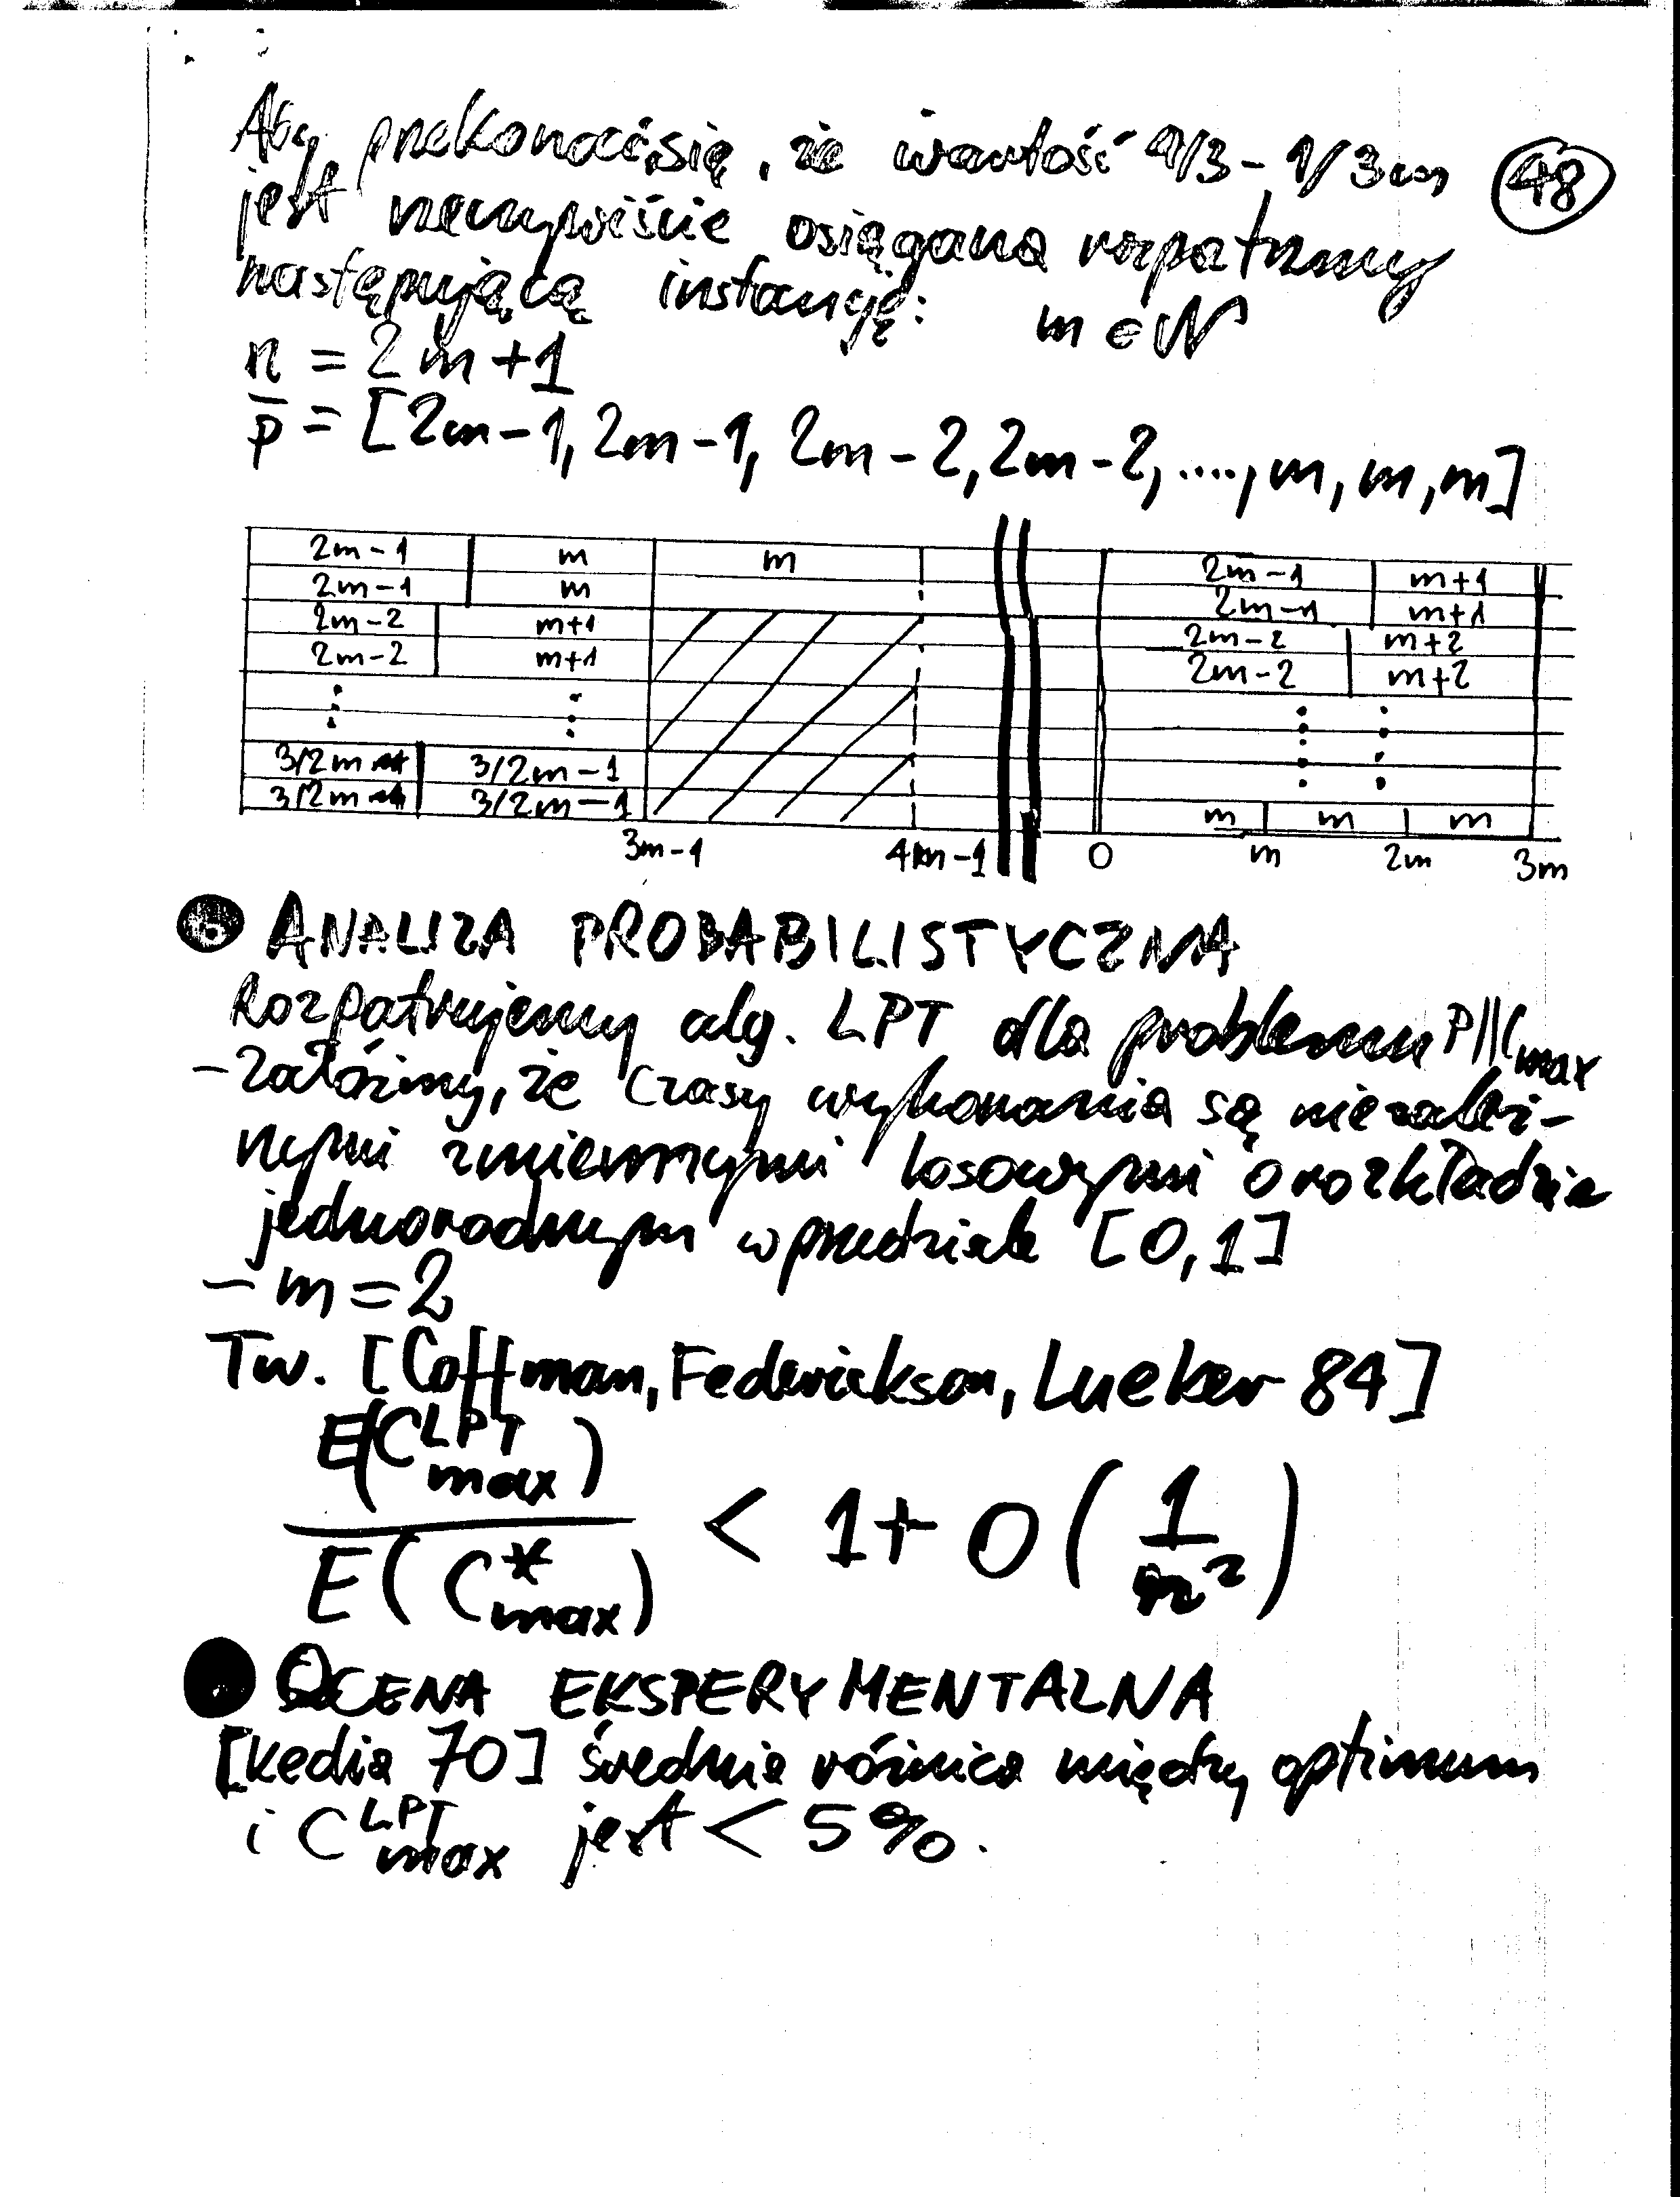 Aby przekonać się, że wartość 4/3 - 1/3m (48)
jest rzeczywiście osiągana rozpatrzmy
następującą instancję: m ∈ N
n = 2m+1
p̄ = [2m-1, 2m-1, 2m-2, 2m-2, ...., m, m, m]
2m-1 m m 2m-1 m+1
2m-1 m 2m-1 m+1
2m-2 m+1 2m-2 m+2
2m-2 m+1 2m-2 m+2
3/2m 3/2m-1
3/2m 3/2m-1 m m m
3m-1 4m-1 0 m 2m 3m
ANALIZA PROBABILISTYCZNA
Rozpatrujemy alg. LPT dla problemu P||Cmax
- Załóżmy, że czasy wykonania są niezależ-
nymi zmiennymi losowymi o rozkładzie
jednorodnym w przedziale [0,1]
- m = 2
Tw. [Coffman, Federickson, Lueker 84]
E(C^LPT_max) / E(C*_max) < 1 + O(1/n²)
OCENA EKSPERYMENTALNA
[Kedia 70] średnia różnica między optimum
i C^LPT_max jest < 5%.